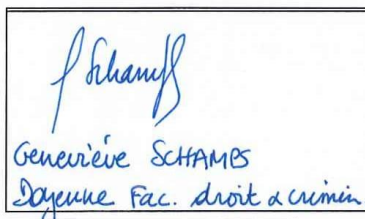 G Schamps
Geneviève SCHAMPS
Doyenne Fac. droit & crimin.